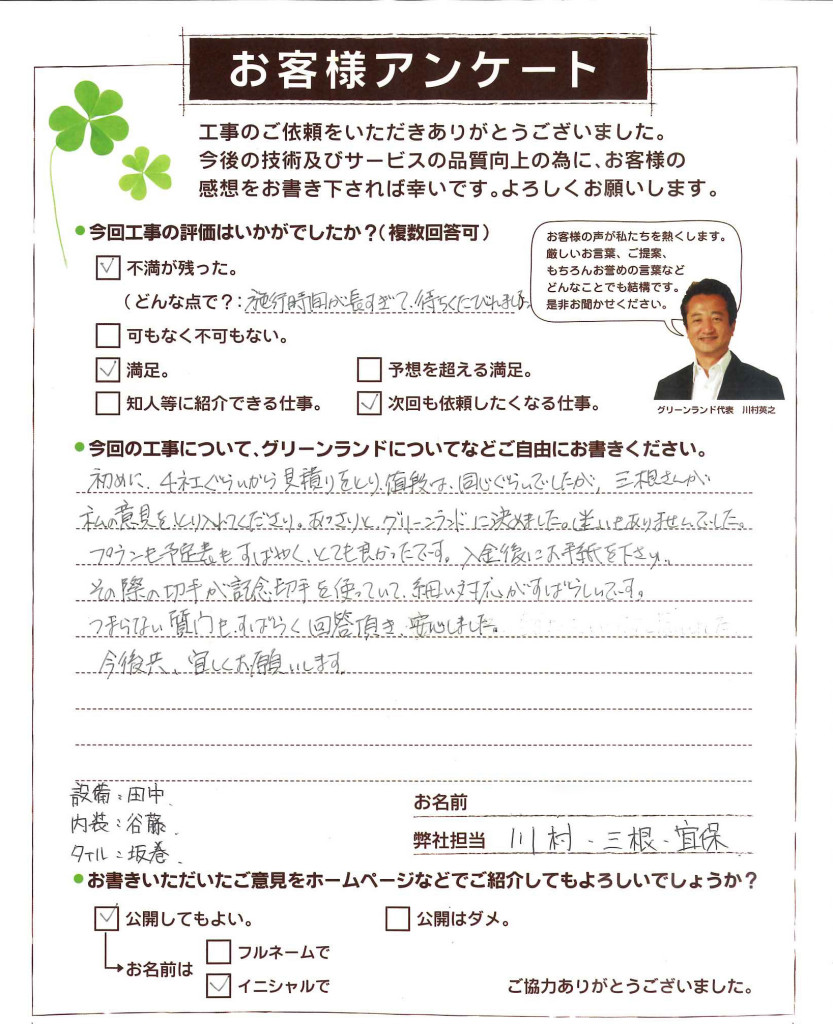 お客様アンケート
工事のご依頼をいただきありがとうございました。
今後の技術及びサービスの品質向上の為に、お客様の
感想をお書き下されば幸いです。よろしくお願いします。
●今回工事の評価はいかがでしたか？（複数回答可）
不満が残った。
（どんな点で？：施行時間が長すぎて、待ちくたびれました
可もなく不可もない。
満足。
予想を超える満足。
知人等に紹介できる仕事。
次回も依頼したくなる仕事。
お客様の声が私たちを熱くします。
厳しいお言葉、ご提案、
もちろんお誉めの言葉など
どんなことでも結構です。
是非お聞かせください。
グリーンランド代表　川村英之
●今回の工事について、グリーンランドについてなどご自由にお書きください。
初めに、4社ぐらいから見積りをとり、値段は、同じぐらいでしたが、三根さんが
私の意見をとり入れてくださり。あっさりと、グリーンランドに決めました。迷いもありませんでした。
プランも予定表もすばやく、とても良かったです。入金後にお手紙を下さい、
その際の切手が記念切手を使っていて、細い対応がすばらしいです。
つまらない質問も、すばらく回答頂き、安心しました。
今後共、宜しくお願いします。
設備：田中、
内装：谷藤、
タイル：坂巻、
お名前
弊社担当 川村・三根・宜保
●お書きいただいたご意見をホームページなどでご紹介してもよろしいでしょうか？
公開してもよい。
公開はダメ。
お名前は
フルネームで
イニシャルで
ご協力ありがとうございました。